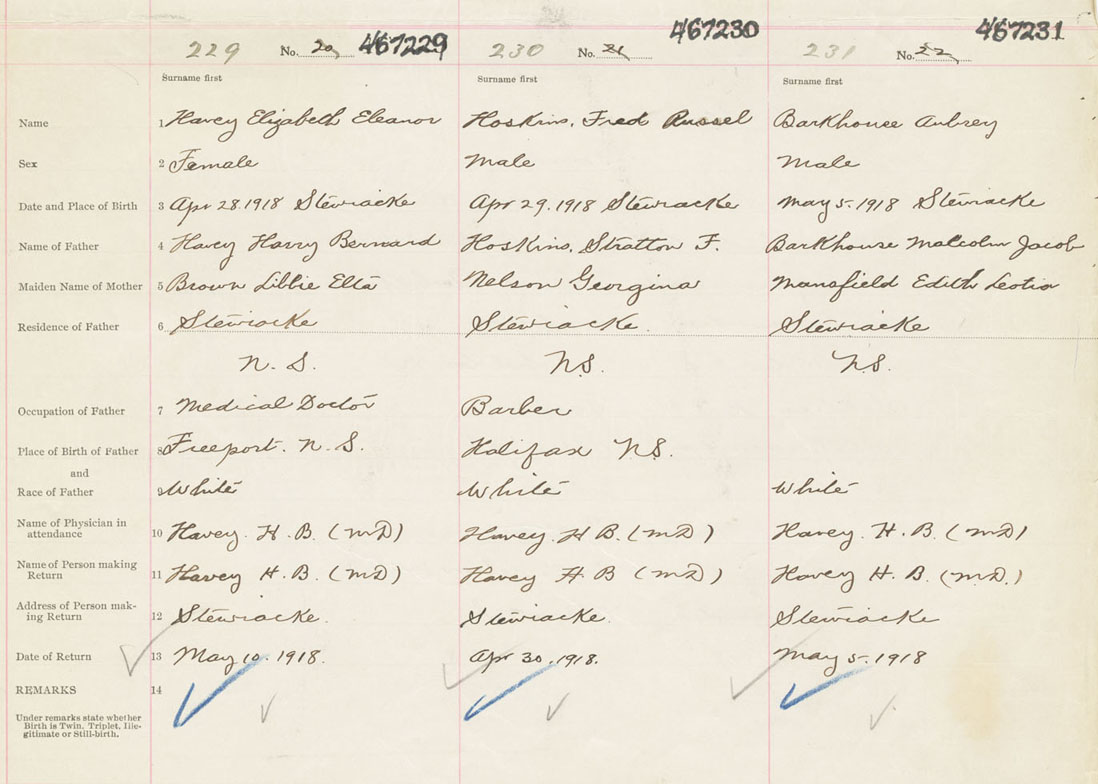 229 No. 20 467229 230 No. 21 467230 231 No. 22 467231
Surname first Surname first Surname first
Name 1 Havey Elizabeth Eleanor Hoskins, Fred Russel Barkhouse Aubrey
Sex 2 Female Male Male
Date and Place of Birth 3 Apr 28.1918 Stewiacke Apr 29.1918 Stewiacke May 5.1918 Stewiacke
Name of Father 4 Havey Harry Bernard Hoskins, Stratton F. Barkhouse Malcolm Jacob
Maiden Name of Mother 5 Brown Libbie Elta Nelson Georgina Mansfield Edith Leotia
Residence of Father 6 Stewiacke Stewiacke. Stewiacke
N. S. N.S. N.S.
Occupation of Father 7 Medical Doctor Barber
Place of Birth of Father 8 Freeport. N. S. Halifax N.S.
and
Race of Father 9 White White White
Name of Physician in
attendance 10 Havey. H. B. (MD) Havey. H B. (MD) Havey. H. B. (MD)
Name of Person making
Return 11 Havey H. B. (MD) Havey H B (MD) Havey H. B. (M.D.)
Address of Person mak-
ing Return 12 Stewiacke. Stewiacke. Stewiacke
Date of Return 13 May 10. 1918. Apr 30. 1918. May 5. 1918
REMARKS 14
Under remarks state whether
Birth is Twin, Triplet, Ille-
gitimate or Still-birth.